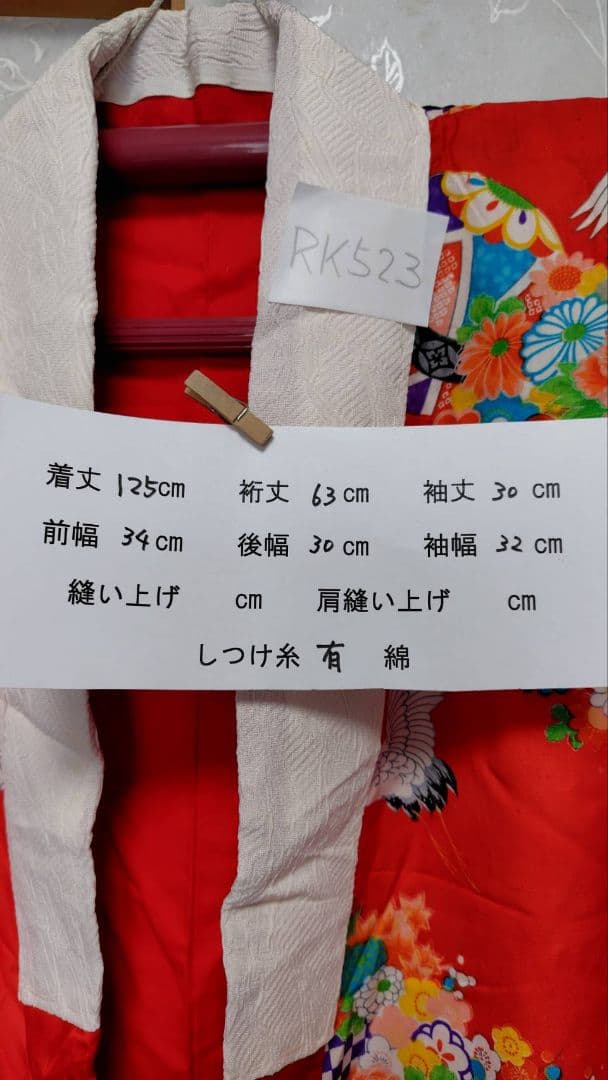 RK523
着丈 125cm 裄丈 63cm 袖丈 30cm
前幅 34cm 後幅 30cm 袖幅 32cm
縫い上げ cm 肩縫い上げ cm
しつけ糸 有 綿